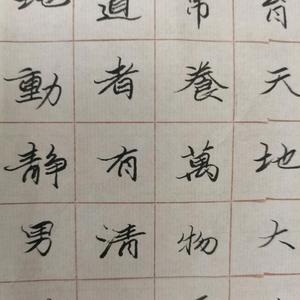 育天地大
養萬物
道者有清
地動靜男